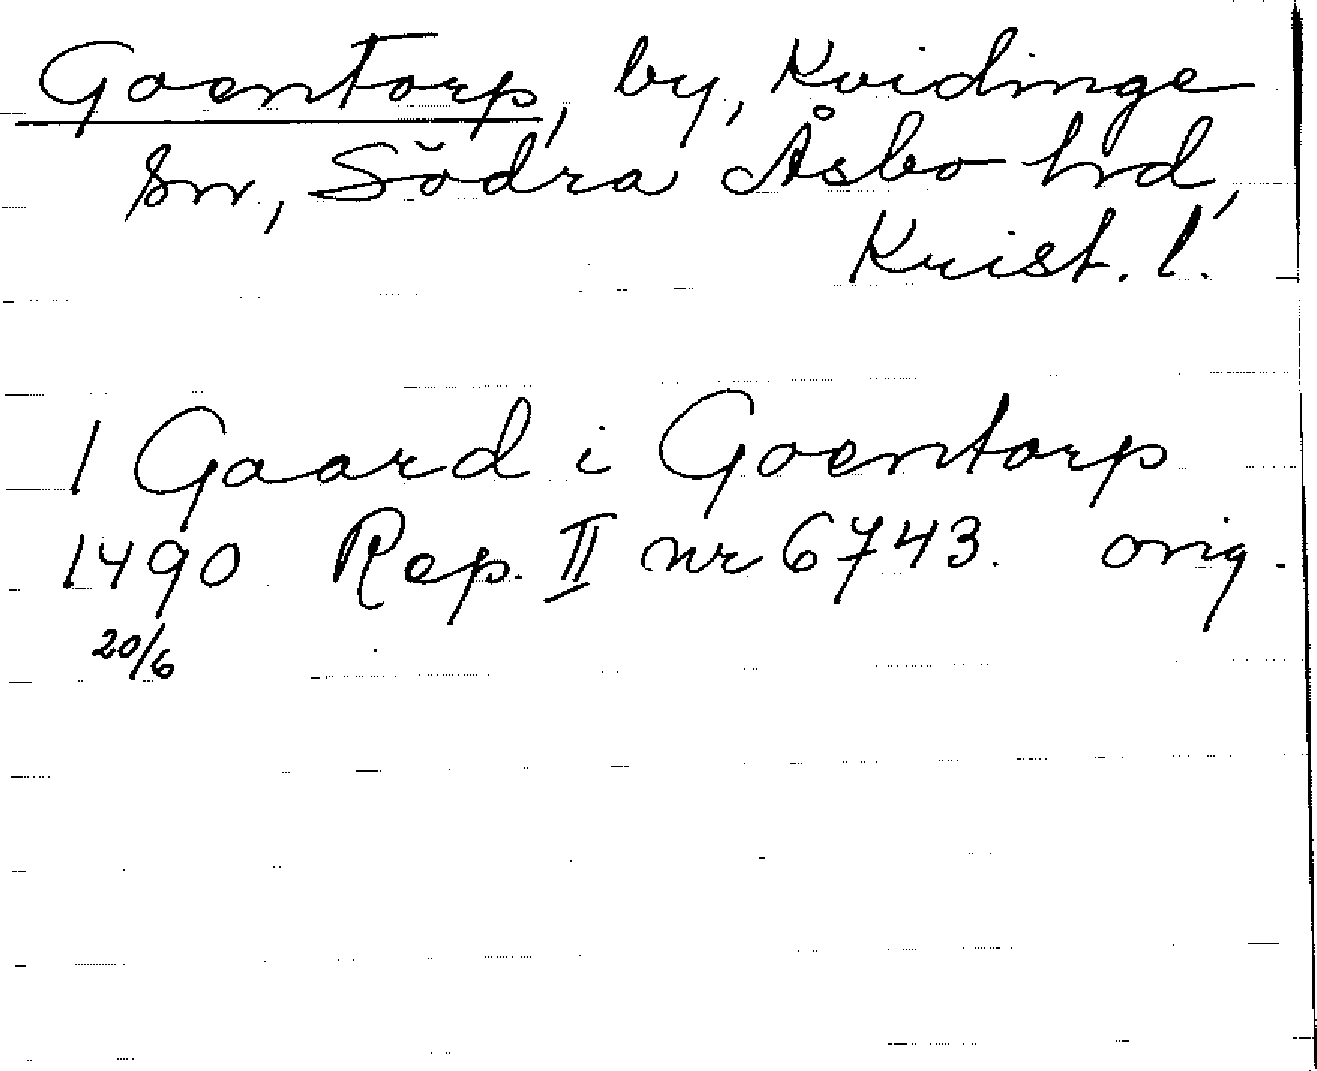 Goentorp, by, Kvidinge
sn, Södra Åsbo hrd,
Krist. l.
1 Gaard i Goentorp
1490 Rep. II nr 6743. orig.
20/6